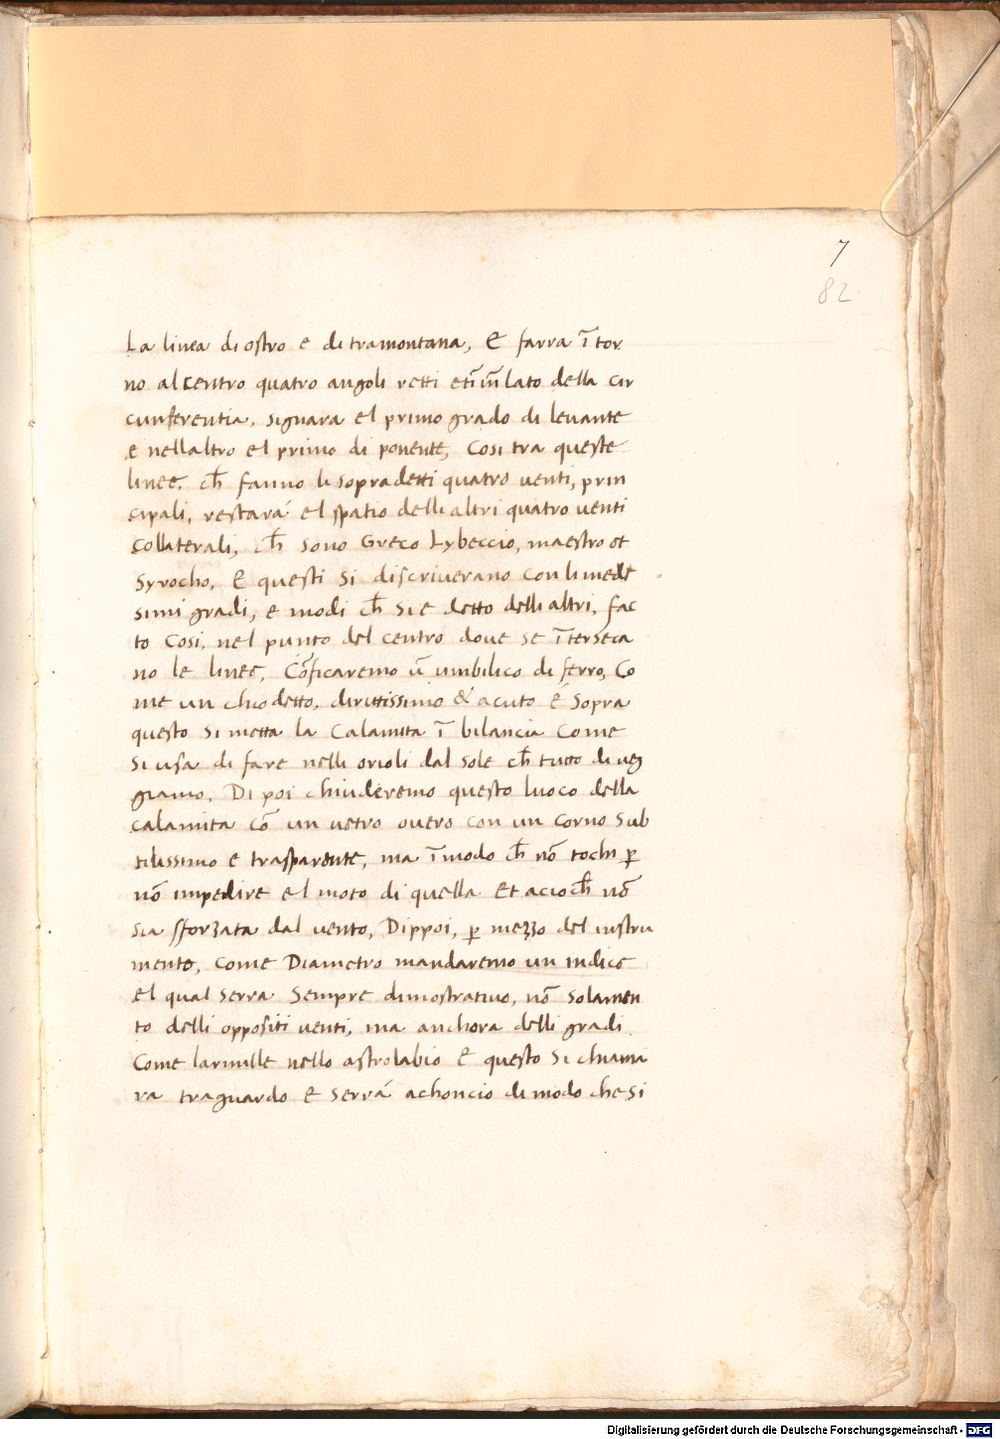 7
82
La linea di ostro e di tramontana, E farra ĩtor
no al centro quatro angoli retti et ĩ ũ lato della cir
cunferentia, signara el primo grado di levante
e nellaltro el primo di ponente, Cosi tra queste
linee, ch̃ fanno li sopradetti quatro venti, prin
cipali, restará el spatio delli altri quatro venti
Collaterali, ch̃ sono Greco Lybeccio, maestro et
Syrocho, E questi si discriverano con li mede
simi gradi, e modi ch̃ si e detto delli altri, fac
to Cosi, nel punto del centro dove se ĩterseca
no le linee, Cõficaremo ũ umbilico di ferro, Co
me un chiodetto, dirittissimo & acuto é sopra
questo si metta la Calamita ĩ bilancia Come
si usa di fare nelli orioli dal sole ch̃ tutto di veg
giamo. Di poi chiuderemo questo luoco della
calamita cõ un vetro overo con un Corno sub
tilissimo e trasparente, ma ĩ modo ch̃ nõ tochi ꝑ
nõ impedire el moto di quella Et acioch̃ nõ
sia sforzata dal vento, Dippoi, ꝑ mezzo del instru
mento, Come Diametro mandaremo un indice
el qual serra Sempre dimostrativo, nõ solamen
to delli oppositi venti, ma anchora delli gradi.
Come larmille nello astrolabio E questo si chiama
ra traguardo E serrá achoncio di modo che si
Digitalisierung gefördert durch die Deutsche Forschungsgemeinschaft - DFG